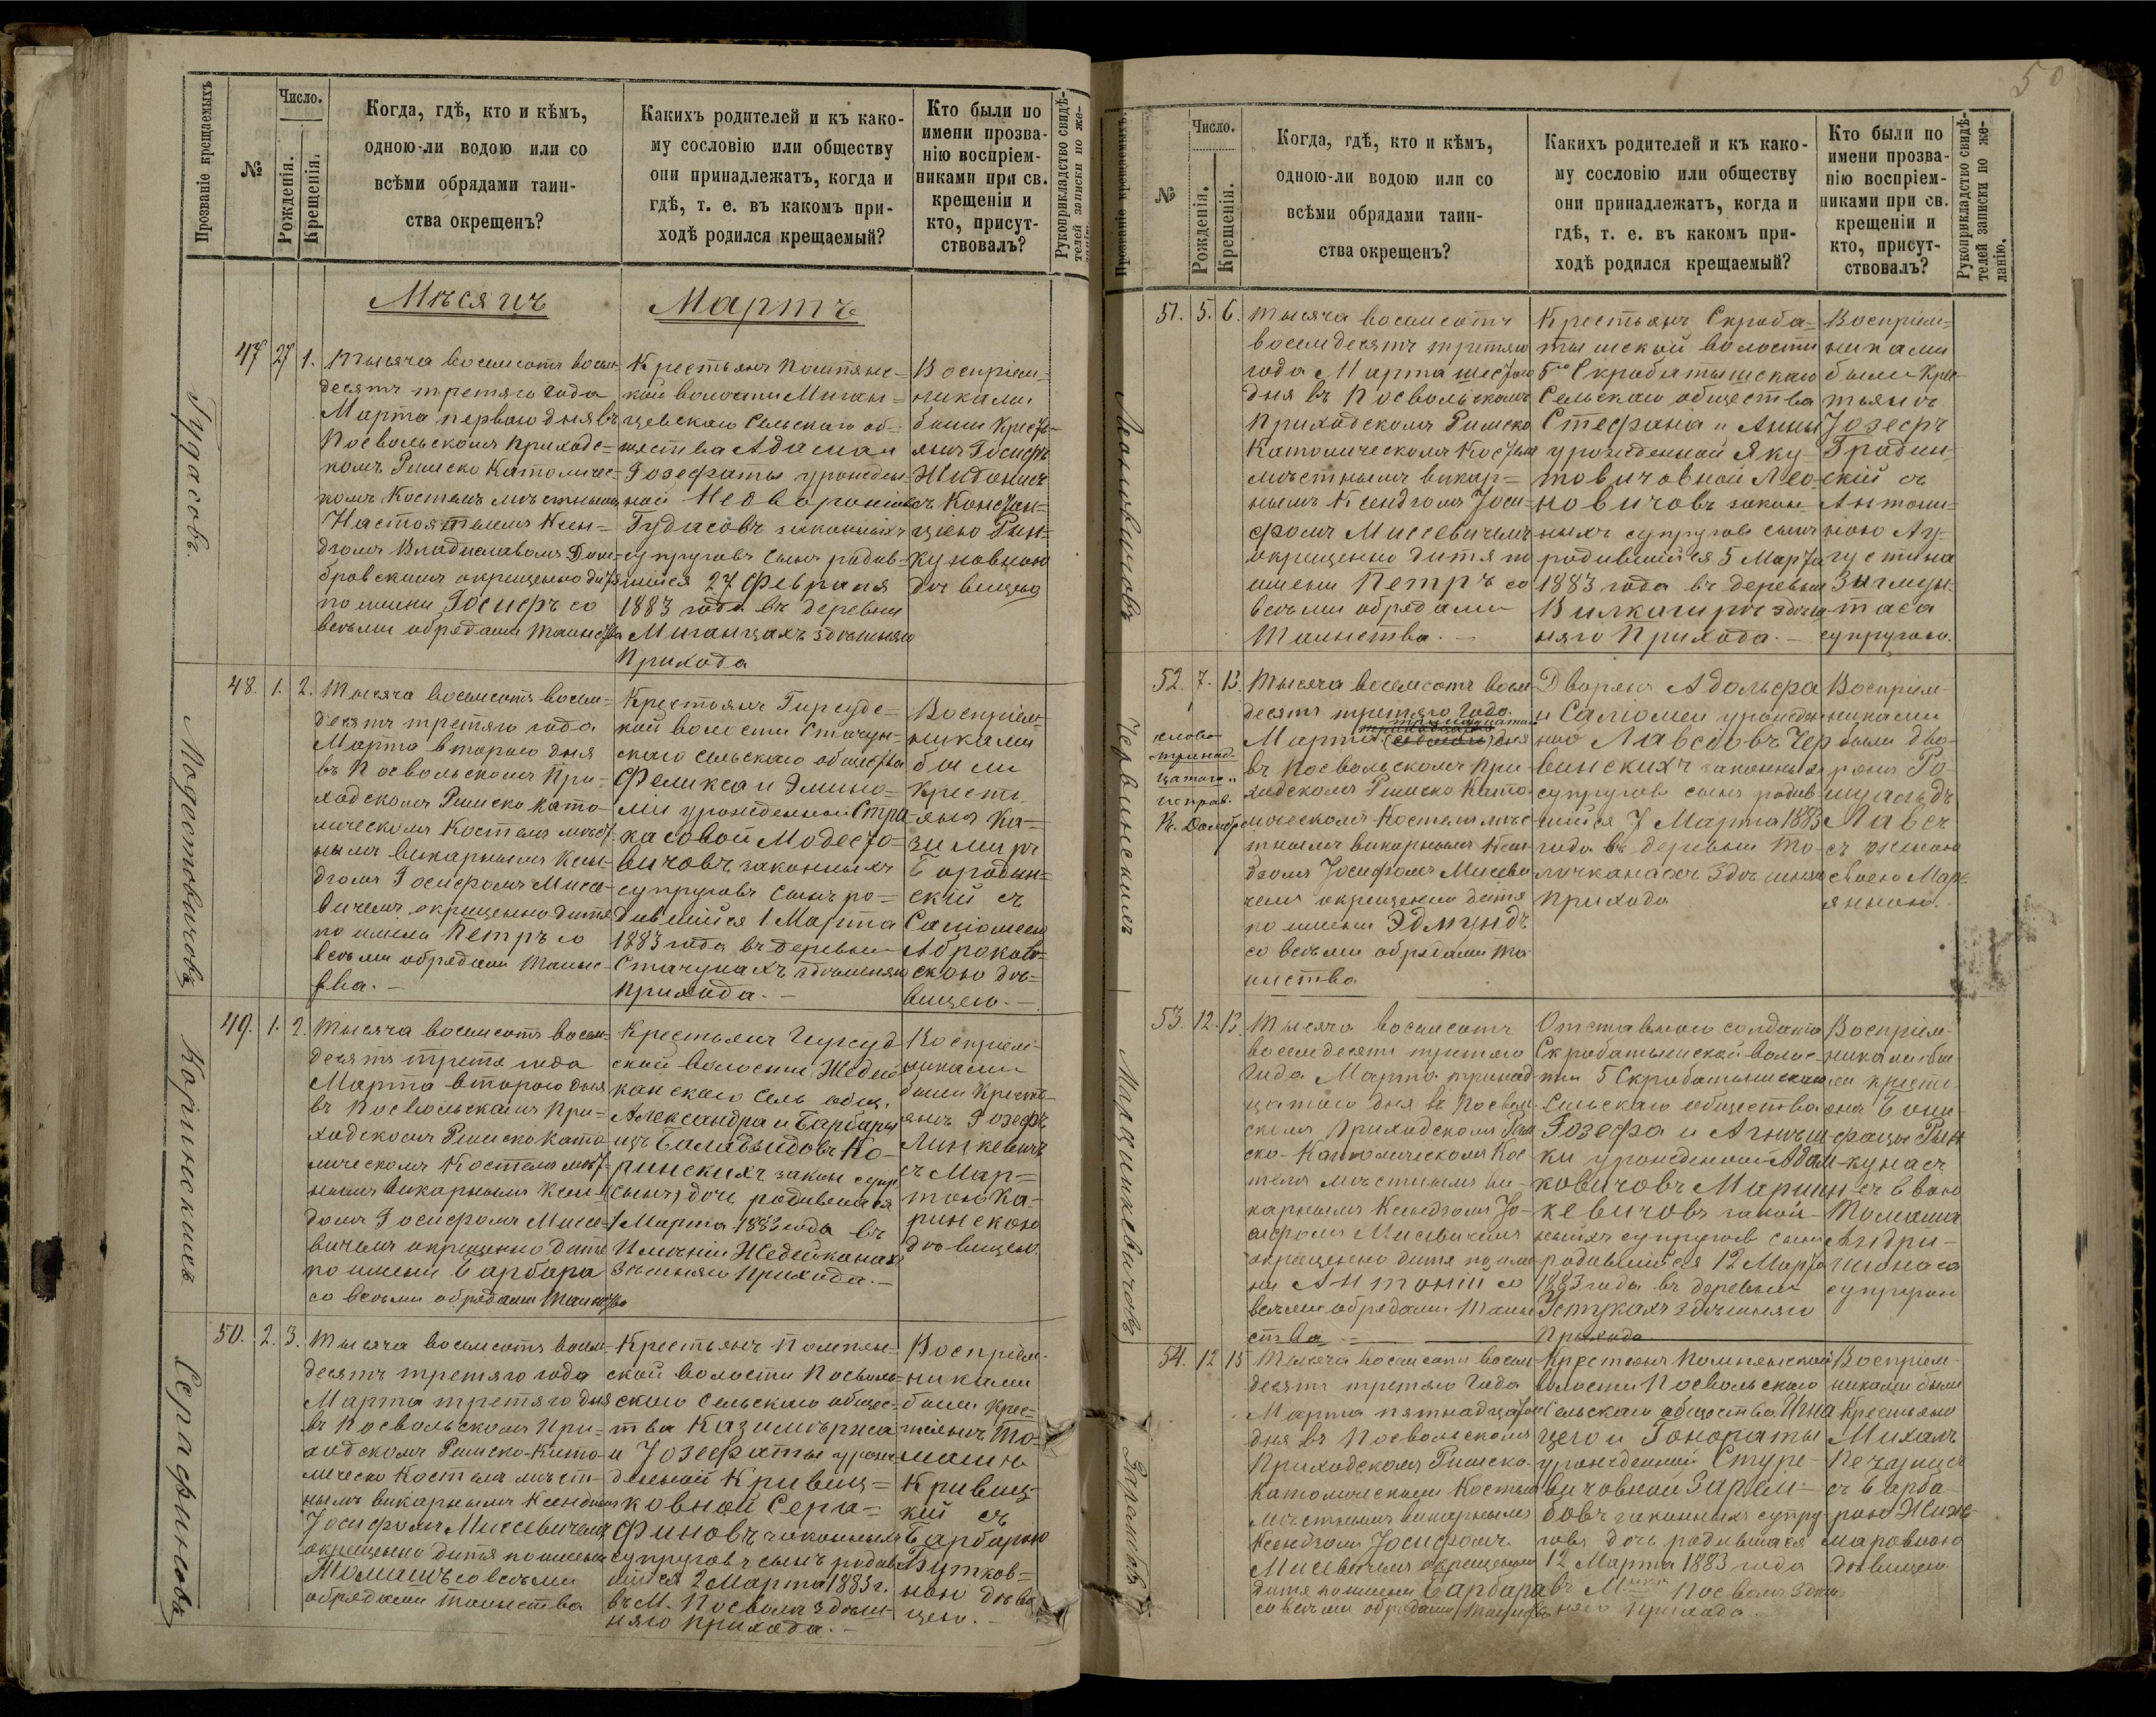 Прозваніе крещаемыхъ
№
Число.
Рожденія.
Крещенія.
Когда, гдѣ, кто и кѣмъ,
одною-ли водою или со
всѣми обрядами таин-
ства окрещенъ?
Какихъ родителей и къ како-
му сословію или обществу
они принадлежатъ, когда и
гдѣ, т. е. въ какомъ при-
ходѣ родился крещаемый?
Кто были по
имени прозва-
нію воспріем-
никами при св.
крещеніи и
кто, присут-
ствовалъ?
Рукоприкладство свидѣ-
телей записки по же-
Мѣсяцъ Мартъ
Гудасовъ
47 27 1.
Тысяча восемсотъ восем-
десятъ третяго года
Марта перваго дня въ
Посвольскомъ приходс-
комъ Римско Католичес-
комъ Костелѣ мѣстнымъ
Настоятелемъ Ксен-
дзомъ Владиславомъ Дом-
бровскимъ окрещено дитя
по имени Іосифъ со
всѣми обрядами таинства
Крестьянъ Помпянс-
кой волости Миган-
цевскаго Сельскаго об-
щества Адама и
Іозефаты урожден-
ной
Гудасовъ законныхъ
супруговъ сынъ родив-
шійся 27 Февраля
1883 года въ деревни
Миганцахъ здѣшняго
прихода
Воспріем-
никами
были Кресть-
янъ Іосифъ
съ Констан-
ціею Рин-
куновною
дѣвицею
Модестовичовъ
48. 1. 2.
Тысяча восемсотъ восем-
десятъ третяго года
Марта второго дня
въ Посвольскомъ При-
ходскомъ Римско Като-
лическомъ Костелѣ мѣст-
нымъ викарнымъ Ксен-
дзомъ Іосифомъ Мисе-
вичемъ окрещено дитя
по имени Петръ со
всѣми обрядами Таинс-
тва. —
Крестьянъ Гирсудс-
кой волости Стачун-
скаго сельскаго общества
Феликса и Эмилі-
ми урожденной Стра-
касовой Модесто-
вичовъ законныхъ
супруговъ сынъ ро-
дившійся 1 Марта
1883 года въ деревни
Стачунахъ здѣшняго
прихода. —
Воспріем-
никами
были
Кресть-
янъ Ка-
зимиръ
Бородин-
скій съ
Саломеею
Аброков-
скою дѣ-
вицею. —
Коринскихъ
49. 1. 2.
Тысяча восемсотъ восем-
десятъ третя года
Марта второго дня
въ Посвольскомъ При-
ходскомъ Римско Като-
лическомъ Костелѣ мѣст-
нымъ викарнымъ Ксен-
домъ Іосифомъ Мисе-
вичемъ окрещено дитя
по имени Барбара
со всѣми обрядами таинства
Крестьянъ Гирсуд
ской волости Жедей-
канскаго Сель общ.
Александра и Барбары
изъ Балавзидовъ Ко-
ринскихъ закон супр
(сынъ) дочь родившаяся
1 Марта 1883 года въ
Имѣніи Жедейканахъ
здѣшняго прихода. —
Воспріем-
никами
были Кресть-
янъ Іозефъ
Линкевичъ
съ Мар-
тою Ка-
ринскою
дѣвицею.
Серафиновъ
50. 2. 3.
Тысяча восемсотъ восем-
десятъ третяго года
Марта третяго дня
въ Посвольскомъ При-
ходскомъ Римско-Като-
лическо Костелѣ мѣст-
нымъ викарнымъ Ксендзомъ
Іосифомъ Мисевичемъ
окрещено дитя по имени
Томашъ со всѣми
обрядами таинства
Крестьянъ Помпян-
ской волости Посволь-
скаго Сельскаго общес-
тва Казимѣржа
и Іозефаты урож-
денной Кривиц-
ковной Сера-
финовъ законныхъ
супруговъ сынъ родив-
шійся 2 Марта 1883 г.
въ М. Посволѣ здѣш-
няго прихода. —
Воспріем-
никами
были Крес-
тьянъ То-
машъ
Кривиц-
кій съ
Барбарою
Бутков-
ною дѣви
цею. —
50
№
Число.
Рожденія.
Крещенія.
Когда, гдѣ, кто и кѣмъ,
одною-ли водою или со
всѣми обрядами таин-
ства окрещенъ?
Какихъ родителей и къ како-
му сословію или обществу
они принадлежатъ, когда и
гдѣ, т. е. въ какомъ при-
ходѣ родился крещаемый?
Кто были по
имени прозва-
нію воспріем-
никами при св.
крещеніи и
кто, присут-
ствовалъ?
Рукоприкладство свидѣ-
телей записки по же-
ланію.
51. 5. 6.
Тысяча восемсотъ
восемдесятъ третяго
года Марта шестого
дня въ Посвольскомъ
Приходскомъ Римско
Католическомъ Костелѣ
мѣстнымъ викар-
нымъ Ксендзомъ Іоси-
фомъ Мисевичемъ
окрещено дитя по
имени Петръ со
всѣми обрядами
Таинства. —
Крестьянъ Скроба-
тышской волости
5го Скробатышскаго
Сельскаго общества
Стефана и Анны
урожденной Яку-
товичовной Лео-
новичовъ закон-
ныхъ супругов сынъ
родившійся 5 Марта
1883 года въ деревни
здѣш-
няго Прихода. —
Воспріем-
никами
были Крес-
тьянъ
Іозефъ
Градин-
скій съ
Антони-
ною Ау-
густина
Зигмун-
таса
супругою.
Червинскихъ
52. 7. 13.
слово
„тринад-
цатаго“
исправ.
К. Домбр.
Тысяча восемсотъ восем
десятъ третяго года
Марта тринадцатаго (седьмого) дня
въ Посвольскомъ При
ходскомъ Римско Като-
лическомъ Костелѣ мѣс
тнымъ викарнымъ Ксен-
дзомъ Іосифомъ Мисеви
чемъ окрещено дитя
по имени Эдмундъ
со всѣми обрядами та
инства
Дворянъ Адольфа
и Саломеи урожден
ной Лавсовъ Чер
винскихъ законныхъ
супругов сынъ родив
шійся 7 Марта 1883
года въ деревни То-
лочканахъ здѣшняго
прихода
Воспріем-
никами
были дво-
рянъ Ро-
муальдъ
Лавсъ
съ женою
своею Мар-
янною.
Марцинкевичовъ
53. 12. 13.
Тысяча восемсотъ
восемдесятъ третяго
года Марта тринад
цатаго дня въ Посволь
скомъ Приходскомъ Рим
ско-Католическомъ Кос
телѣ мѣстнымъ ви-
карнымъ Ксендзомъ Іо-
сифомъ Мисевичемъ
окрещено дитя по име
ни Антоній со
всѣми обрядами Таин
ства —
Отставного солдата
Скробатышской волос-
ти 5 Скробатышскаго
Сельскаго общества
Іозефа и Агнеш
ки урожденной Адам-
ковичовъ Марцин-
кевичовъ закон-
ныхъ супругов сынъ
родившійся 12 Марта
1883 года въ деревни
Устукахъ здѣшняго
Прихода
Воспріем-
никами бы-
ли кресть
янъ Бони-
фацы Рын-
кунасъ
съ Евою
Томаша
Андри-
супругою
54. 12 15
Тысяча восемсотъ восем
десятъ третяго года
Марта пятнадцатаго
дня въ Посвольскомъ
Приходскомъ Римско-
Католическомъ Костелѣ
мѣстнымъ викарнымъ
Ксендзомъ Іосифомъ
Мисевичемъ окрещено
дитя по имени Барбара
со всѣми обрядами таинства
Крестьянъ Помпянской
волости Посвольскаго
Сельскаго общества Игна
цего и Гонораты
урожденной Струе-
вичовной
законныхъ супру-
говъ дочь родившаяся
12 Марта 1883 года
въ М. Посволѣ здѣш
няго прихода.
Воспріем-
никами были
Крестьянъ
Михалъ
съ Барба-
рою
дѣвицею